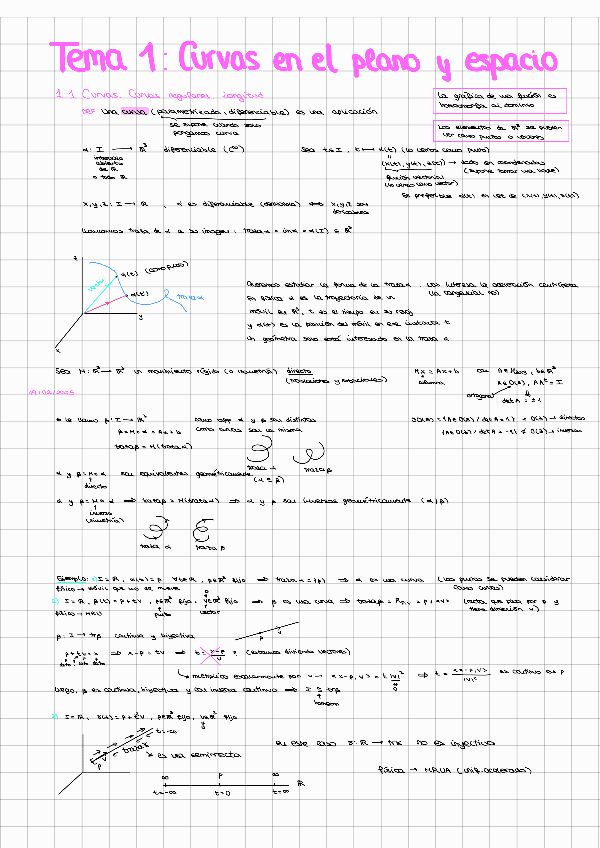 Tema 1: Curvas en el plano y espacio
1.1. Curvas. Curvas regulares. Longitud
La gráfica de una función es
homeomorfa al dominio
DEF Una curva (parametrizada, diferenciable) es una aplicación
se supone cuando solo
pongamos curva
Los elementos de ℝ³ se pueden
ver como puntos o vectores
α: I → ℝ³ diferenciable (C∞)
intervalo
abierto
de ℝ
o todo ℝ
Sea t∈I, t ↦ α(t) (lo vemos como punto)
(x(t), y(t), z(t)) → dado en coordenadas
(supone tomar una base)
función vectorial
(lo vemos como vector)
Es preferible α(t) en vez de (x(t), y(t), z(t))
x, y, z: I → ℝ, α es diferenciable (derivable) ⟺ x, y, z son
derivables
Llamamos traza de α a su imagen: traza α = im α = α(I) ⊆ ℝ³
z
α(t) (como punto)
α(t)
traza α
y
x
Queremos estudiar la forma de la traza α.
En física α es la trayectoria de un
móvil en ℝ³, t es el tiempo en su reloj
y α(t) es la posición del móvil en ese instante t
Un geómetra solo está interesado en la traza α
nos interesa la aceleración centrípeta
(la tangencial no)
Sea M: ℝ³ → ℝ³ un movimiento rígido (o isometría) directo
(traslaciones y rotaciones)
Mx = Ax + b
con A∈M3x3, b∈ℝ³
A∈O(3), AAᵗ = I
ortogonal
det A = ±1
09/02/2025
β: I → ℝ³
β = M∘α = Aα + b
traza β = M(traza α)
como app α y β son distintas
como curvas son la misma
traza α
traza β
α y β = M∘α son equivalentes geométricamente
directo
(α ≅ β)
α y β = M∘α ⟹ traza β = M(traza α) ⟹ α y β son inversas geométricamente
inverso
(simetría)
traza α
traza β
Ejemplo: 1) I = ℝ, α(t) = p ∀t∈ℝ, p∈ℝ³ fijo ⟹ traza α = {p} ⟹ α es una curva (los puntos se pueden considerar
como curvas)
Físico → móvil que no se mueve
2) I = ℝ, β(t) = p + tv, p∈ℝ³ fijo, v∈ℝ³ fijo ⟹ β es una curva
punto
vector
(recta que pasa por p y
tiene dirección v)
Físico → MRU
β: I → tr β continua y biyectiva
p
v
p + tv = x ⟹ x - p = tv ⟹ t = x-p / v (estamos dividiendo vectores)
multiplico escalarmente por v → <x-p, v> = t |v|² ⟹ t = <x-p, v> / |v|² es continua en p
Luego, β es continua, biyectiva y con inversa continua ⟹ I ≅ tr β
3) I = ℝ, γ(t) = p + t²v, p∈ℝ³ fijo, v∈ℝ³ fijo
t = -∞
traza γ
t = ∞
p
v
γ es una semirrecta
En este caso γ: ℝ → tr γ no es inyectiva
Física → MRUA (unif. acelerado)
∞ p ∞
ℝ
t = -∞ t = 0 t = ∞